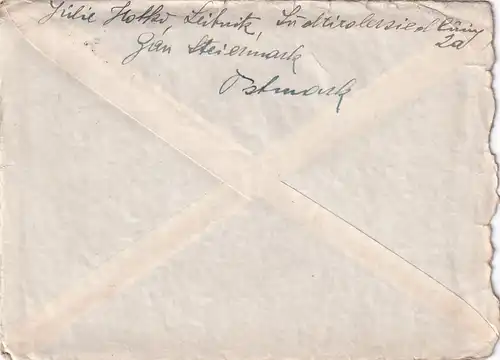 Julie Hotko, Leibnitz, Südtirolersiedlung
2a
Gau Steiermark
Ostmark